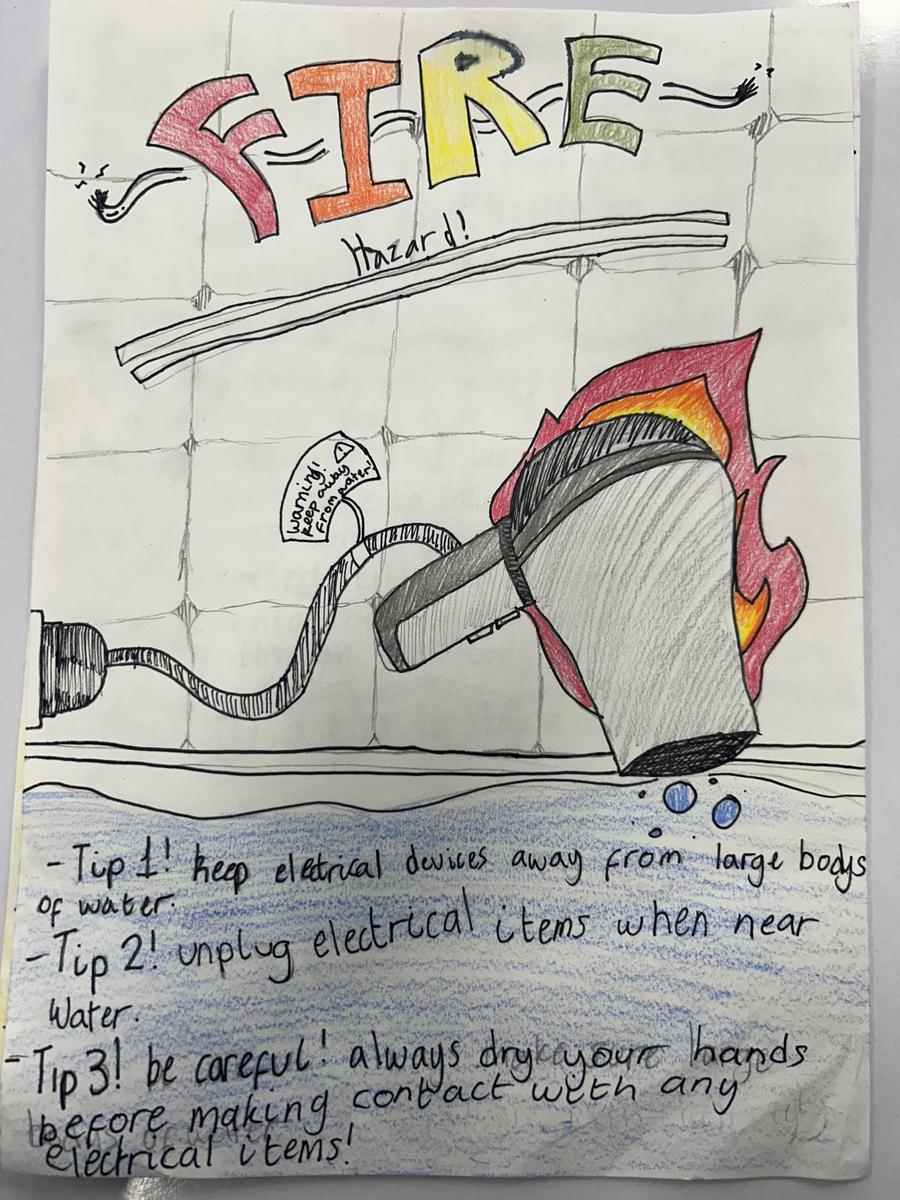 FIRE
Hazard!
Warning!
keep away
from water!
- Tip 1! keep eletrical devices away from large bodys
of water.
- Tip 2! unplug electrical items when near
water.
- Tip 3! be careful! always dry your hands
before making contact with any
electrical items!